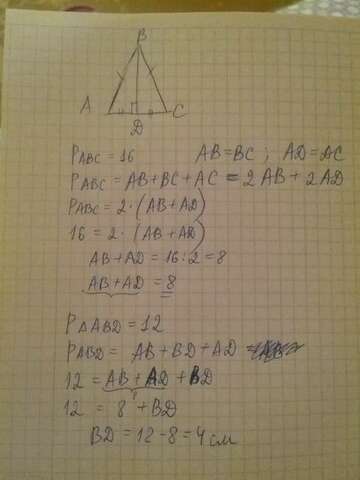 B
A
C
D
P_ABC = 16 AB = BC ; AD = AC
P_ABC = AB + BC + AC = 2AB + 2AD
P_ABC = 2 · (AB + AD)
16 = 2 · (AB + AD)
AB + AD = 16 : 2 = 8
AB + AD = 8
P△ABD = 12
P_ABD = AB + BD + AD
12 = AB + AD + BD
12 = 8 + BD
BD = 12 - 8 = 4 см